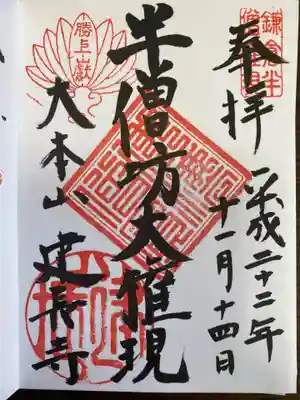 鎌倉半
奉拝
平成二十二年
十一月十四日
半僧坊大権現
勝上嶽
大本山 建長寺